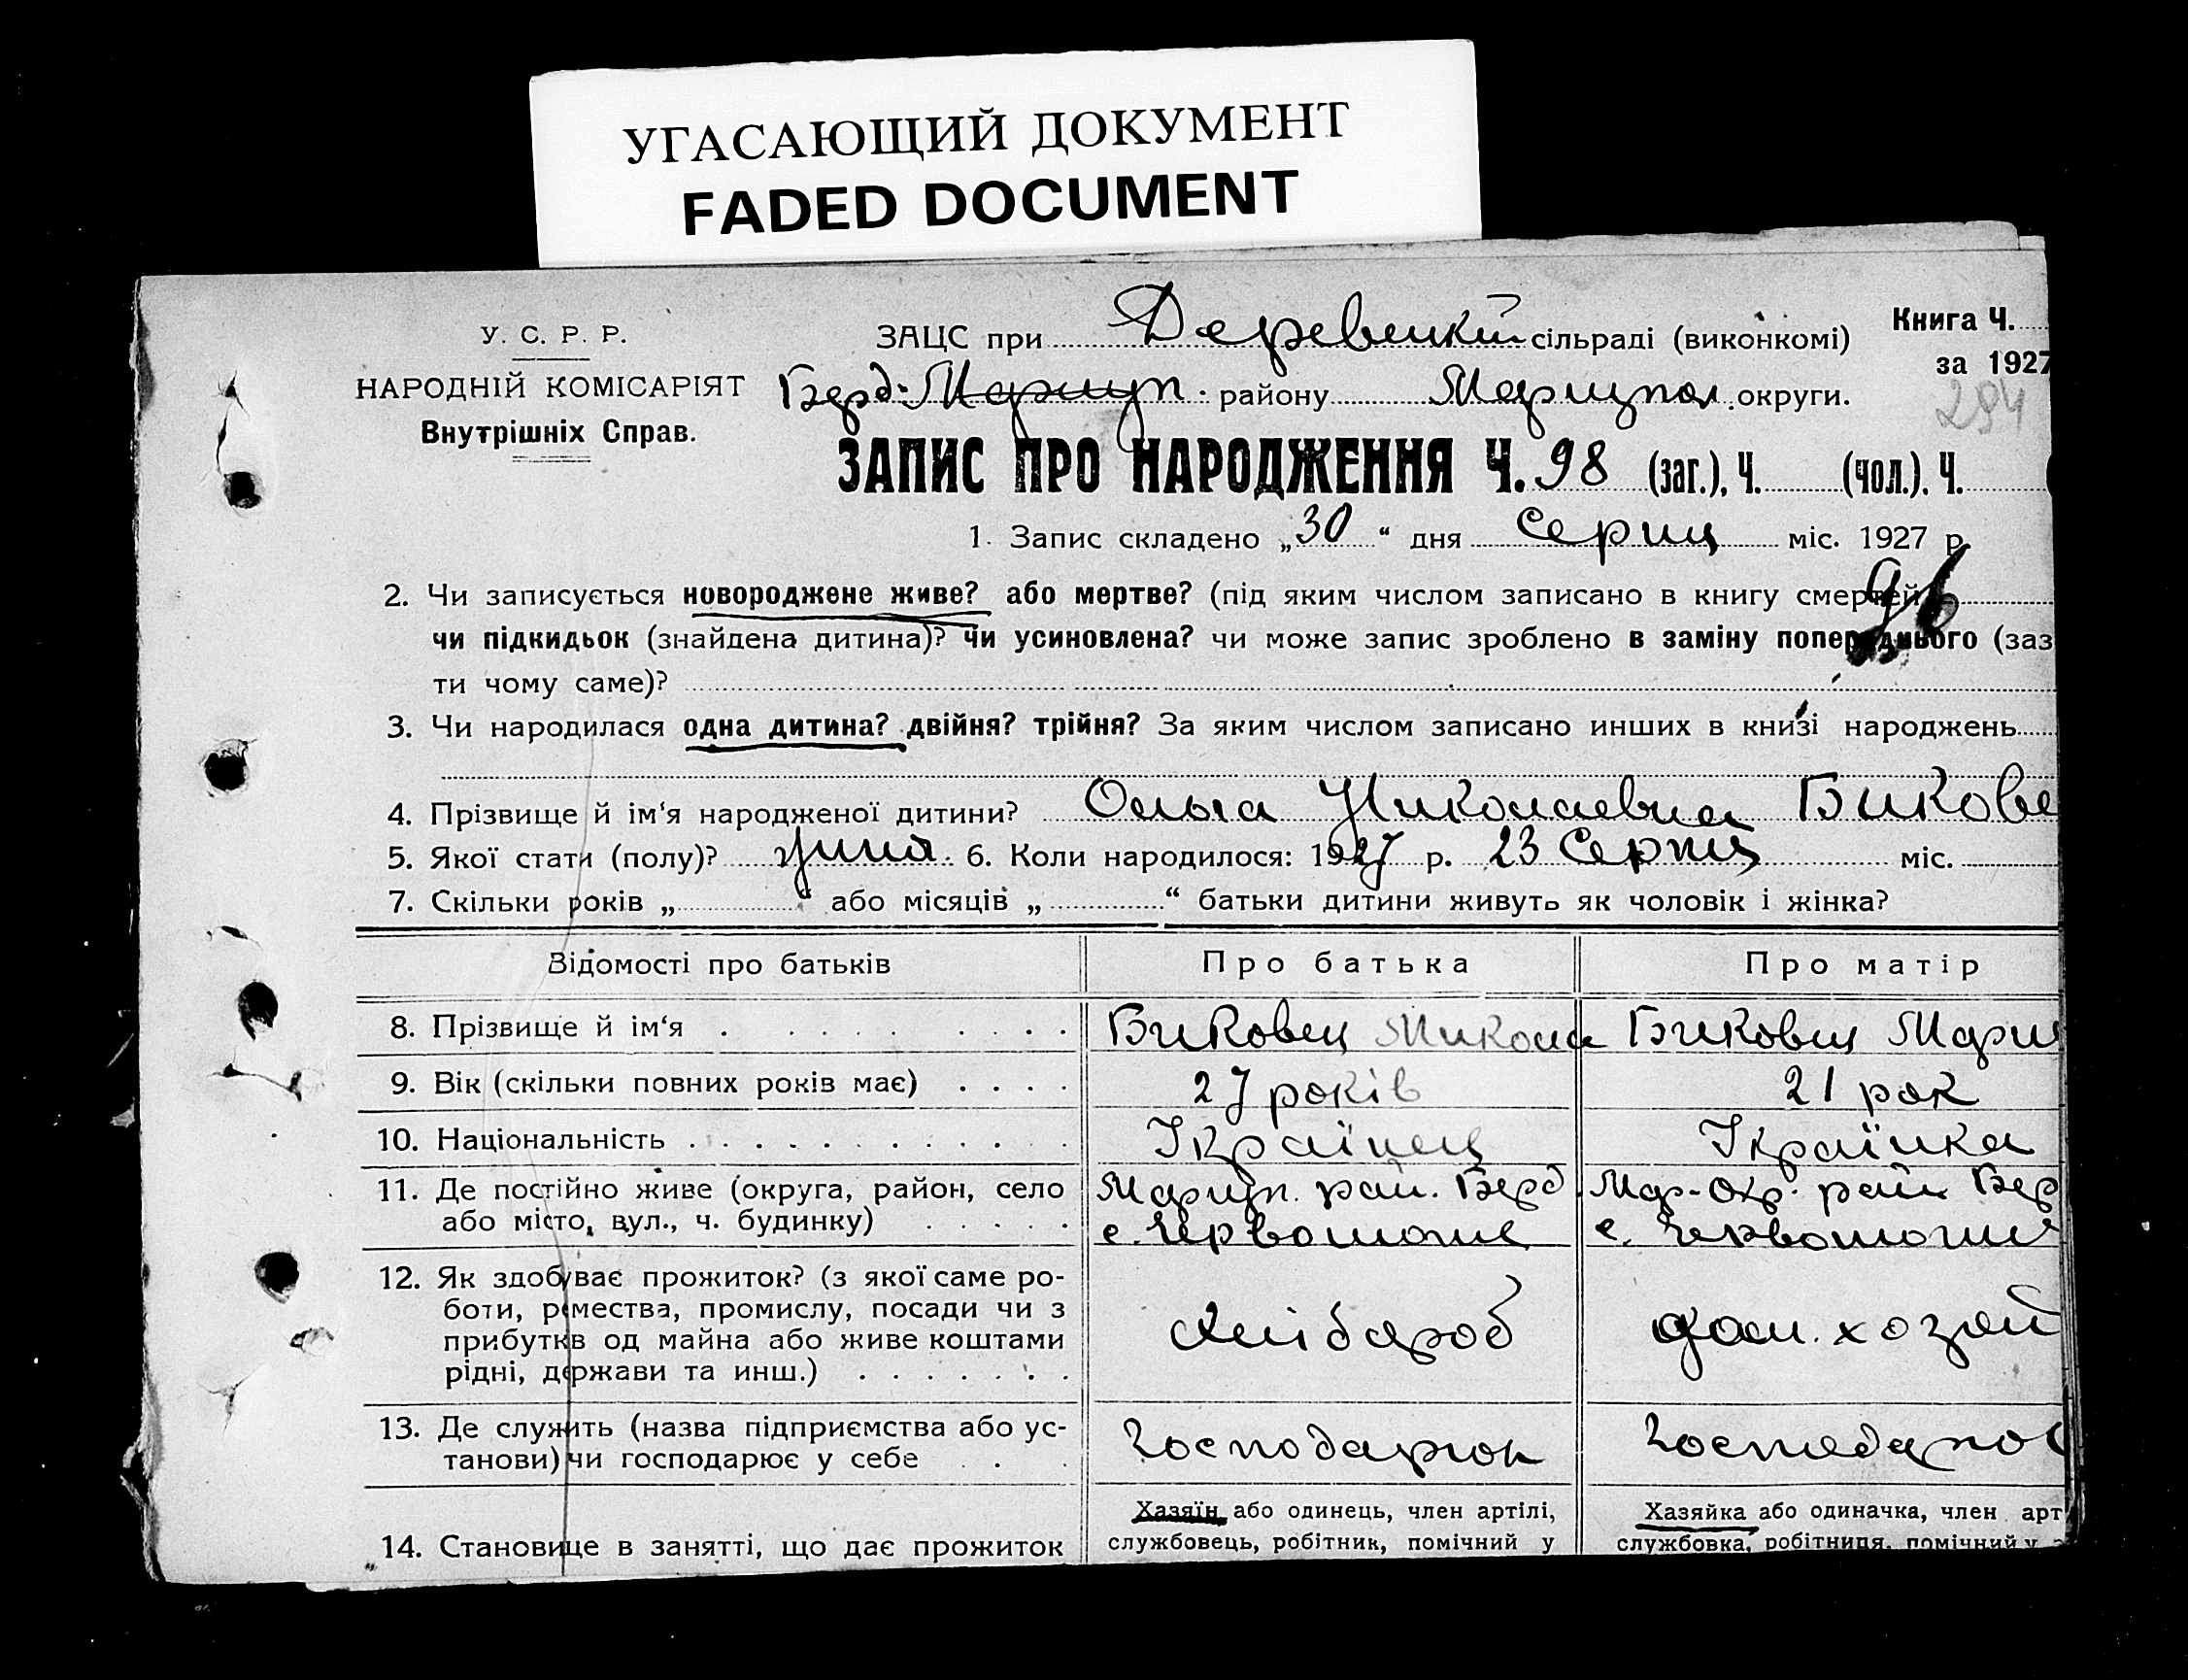 УГАСАЮЩИЙ ДОКУМЕНТ
FADED DOCUMENT
У. С. Р. Р.
НАРОДНІЙ КОМІСАРІЯТ
Внутрішніх Справ.
ЗАЦС при сільраді (виконкомі)
Берд. Мариуп. району Мариупол. округи.
Книга Ч.
за 1927
294
ЗАПИС ПРО НАРОДЖЕННЯ Ч. 98 (заг.), Ч. (чол.). Ч.
1. Запис складено „30“ дня Серпц міс. 1927 р.
96
2. Чи записується новороджене живе? або мертве? (під яким числом записано в книгу смертей
чи підкидьок (знайдена дитина)? чи усиновлена? чи може запис зроблено в заміну попереднього (заз
ти чому саме)?
3. Чи народилася одна дитина? двійня? трійня? За яким числом записано инших в книзі народжень
4. Прізвище й ім‘я народженої дитини? Ольга Николаевна Бикове
5. Якої стати (полу)? 6. Коли народилося: 1927 р. 23 Серпц міс.
7. Скільки років „ “ або місяців „ “ батьки дитини живуть як чоловік і жінка?
Відомості про батьків Про батька Про матір
8. Прізвище й ім‘я Биковец Микола Биковец Мари
9. Вік (скільки повних років має) 27 років 21 рок
10. Національність Українец Українка
11. Де постійно живе (округа, район, село Мариуп. рай. Берд. Мар-Окр. рай. Бер
або місто, вул., ч. будинку) с. с.
12. Як здобуває прожиток? (з якої саме ро-
боти, ремества, промислу, посади чи з
прибутків од майна або живе коштами хлібороб дом. хозяй
рідні, держави та инш.)
13. Де служить (назва підприємства або ус-
танови) чи господарює у себе Господарюк Господарю
Хазяїн або одинець, член артілі, Хазяйка або одиначка, член арт
14. Становище в занятті, що дає прожиток службовець, робітник, помічний у службовка, робітниця, помічний у